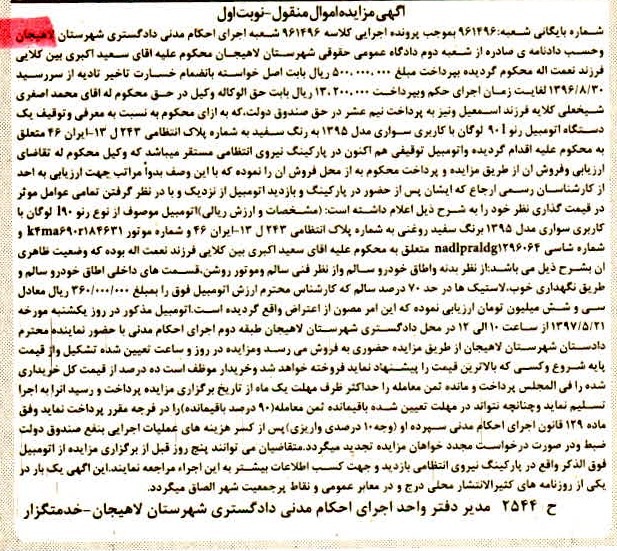 آگهی مزایده اموال منقول-نوبت اول
شماره بایگانی شعبه:۹۶۱۴۹۶ بموجب پرونده اجرایی کلاسه ۹۶۱۴۹۶ شعبه اجرای احکام مدنی دادگستری شهرستان لاهیجان
وحسب دادنامه ی صادره از شعبه دوم دادگاه عمومی حقوقی شهرستان لاهیجان محکوم علیه اقای سعید اکبری بین کلایی
فرزند نعمت اله محکوم گردیده بپرداخت مبلغ ۵۰۰,۰۰۰,۰۰۰ ریال بابت اصل خواسته بانضمام خسارت تاخیر تادیه از سررسید
۱۳۹۶/۸/۳۰ لغایت زمان اجرای حکم وبپرداخت ۱۳,۲۰۰,۰۰۰ ریال بابت حق الوکاله وکیل در حق محکوم له اقای محمد اصغری
شیخعلی کلایه فرزند اسمعیل ونیز به پرداخت نیم عشر در حق صندوق دولت،که به ازای محکوم به نسبت به معرفی وتوقیف یک
دستگاه اتومبیل رنو l۹۰ لوگان با کاربری سواری مدل ۱۳۹۵ به رنگ سفید به شماره پلاک انتظامی ۲۴۳ ل ۱۳-ایران ۴۶ متعلق
به محکوم علیه اقدام گردیده واتومبیل توقیفی هم اکنون در پارکینگ نیروی انتظامی مستقر میباشد که وکیل محکوم له تقاضای
ارزیابی وفروش ان از طریق مزایده و پرداخت محکوم به از محل فروش ان را نموده که با این وصف بدواً مراتب جهت ارزیابی به احد
از کارشناسان رسمی ارجاع که ایشان پس از حضور در پارکینگ و بازدید اتومبیل از نزدیک و با در نظر گرفتن تمامی عوامل موثر
در قیمت گذاری نظر خود را به شرح ذیل اعلام داشته است: (مشخصات و ارزش ریالی)اتومبیل موصوف از نوع رنو l۹۰ لوگان با
کاربری سواری مدل ۱۳۹۵ برنگ سفید روغنی به شماره پلاک انتظامی ۲۴۳ ل ۱۳-ایران ۴۶ و شماره موتور k۴ma۶۹۰۲۱۸۴۶۳۱ و
شماره شاسی nadlpraldg۱۲۹۶۰۶۴ متعلق به محکوم علیه اقای سعید اکبری بین کلایی فرزند نعمت اله بوده که وضعیت ظاهری
ان بشرح ذیل می باشد:از نظر بدنه واطاق خودرو سالم واز نظر فنی سالم وموتور روشن،قسمت های داخلی اطاق خودرو سالم و
طریق نگهداری خوب،لاستیک ها در حد ۷۰ درصد سالم که کارشناس محترم ارزش اتومبیل فوق را بمبلغ ۳۶۰/۰۰۰/۰۰۰ ریال معادل
سی و شش میلیون تومان ارزیابی نموده که این امر مصون از اعتراض واقع گردیده است.اتومبیل مذکور در روز یکشنبه مورخه
۱۳۹۷/۵/۲۱ از ساعت ۱۰ الی ۱۲ در محل دادگستری شهرستان لاهیجان طبقه دوم اجرای احکام مدنی با حضور نماینده محترم
دادستان شهرستان لاهیجان از طریق مزایده حضوری به فروش می رسد ومزایده در روز و ساعت تعیین شده تشکیل واز قیمت
پایه شروع وکسی که بالاترین قیمت را پیشنهاد نماید فروخته خواهد شد وخریدار موظف است ده درصد از قیمت کل خریداری
شده را فی المجلس پرداخت و مانده ثمن معامله را حداکثر ظرف مهلت یک ماه از تاریخ برگزاری مزایده پرداخت و رسید انرا به اجرا
تسلیم نماید وچنانچه نتواند در مهلت تعیین شده باقیمانده ثمن معامله(۹۰ درصد باقیمانده)را در فرجه مقرر پرداخت نماید وفق
ماده ۱۲۹ قانون اجرای احکام مدنی سپرده او (وجه ۱۰ درصدی واریزی)پس از کسر هزینه های عملیات اجرایی بنفع صندوق دولت
ضبط ودر صورت درخواست مجدد خواهان مزایده تجدید میگردد.متقاضیان می توانند پنج روز قبل از برگزاری مزایده از اتومبیل
فوق الذکر واقع در پارکینگ نیروی انتظامی بازدید و جهت کسب اطلاعات بیشتر به این اجراء مراجعه نمایند.این اگهی یک بار در
یکی از روزنامه های کثیرالانتشار محلی درج و در معابر عمومی و نقاط پرجمعیت شهر الصاق میگردد.
ح ۲۵۴۴ مدیر دفتر واحد اجرای احکام مدنی دادگستری شهرستان لاهیجان-خدمتگزار